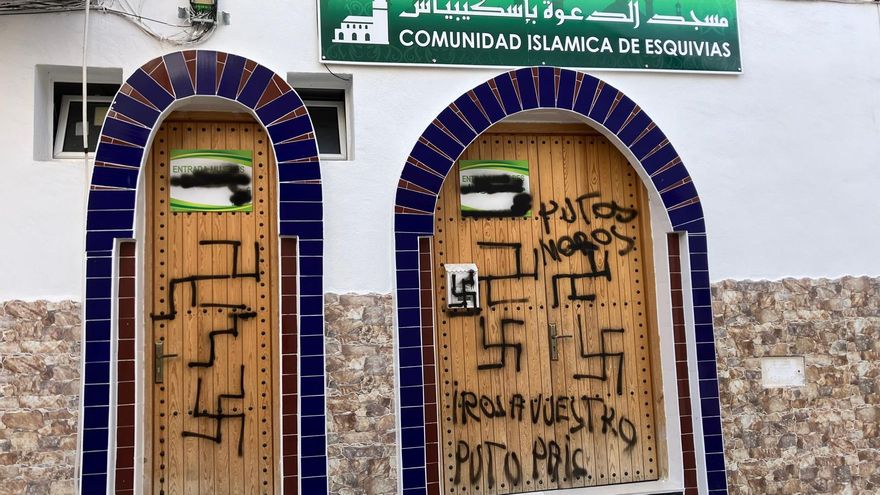 مسجد الدعوة بإسكيبياس
COMUNIDAD ISLAMICA DE ESQUIVIAS
ENTRADA MUJERES
PUTOS
MOROS
IROS A VUESTRO
PUTO PAIS